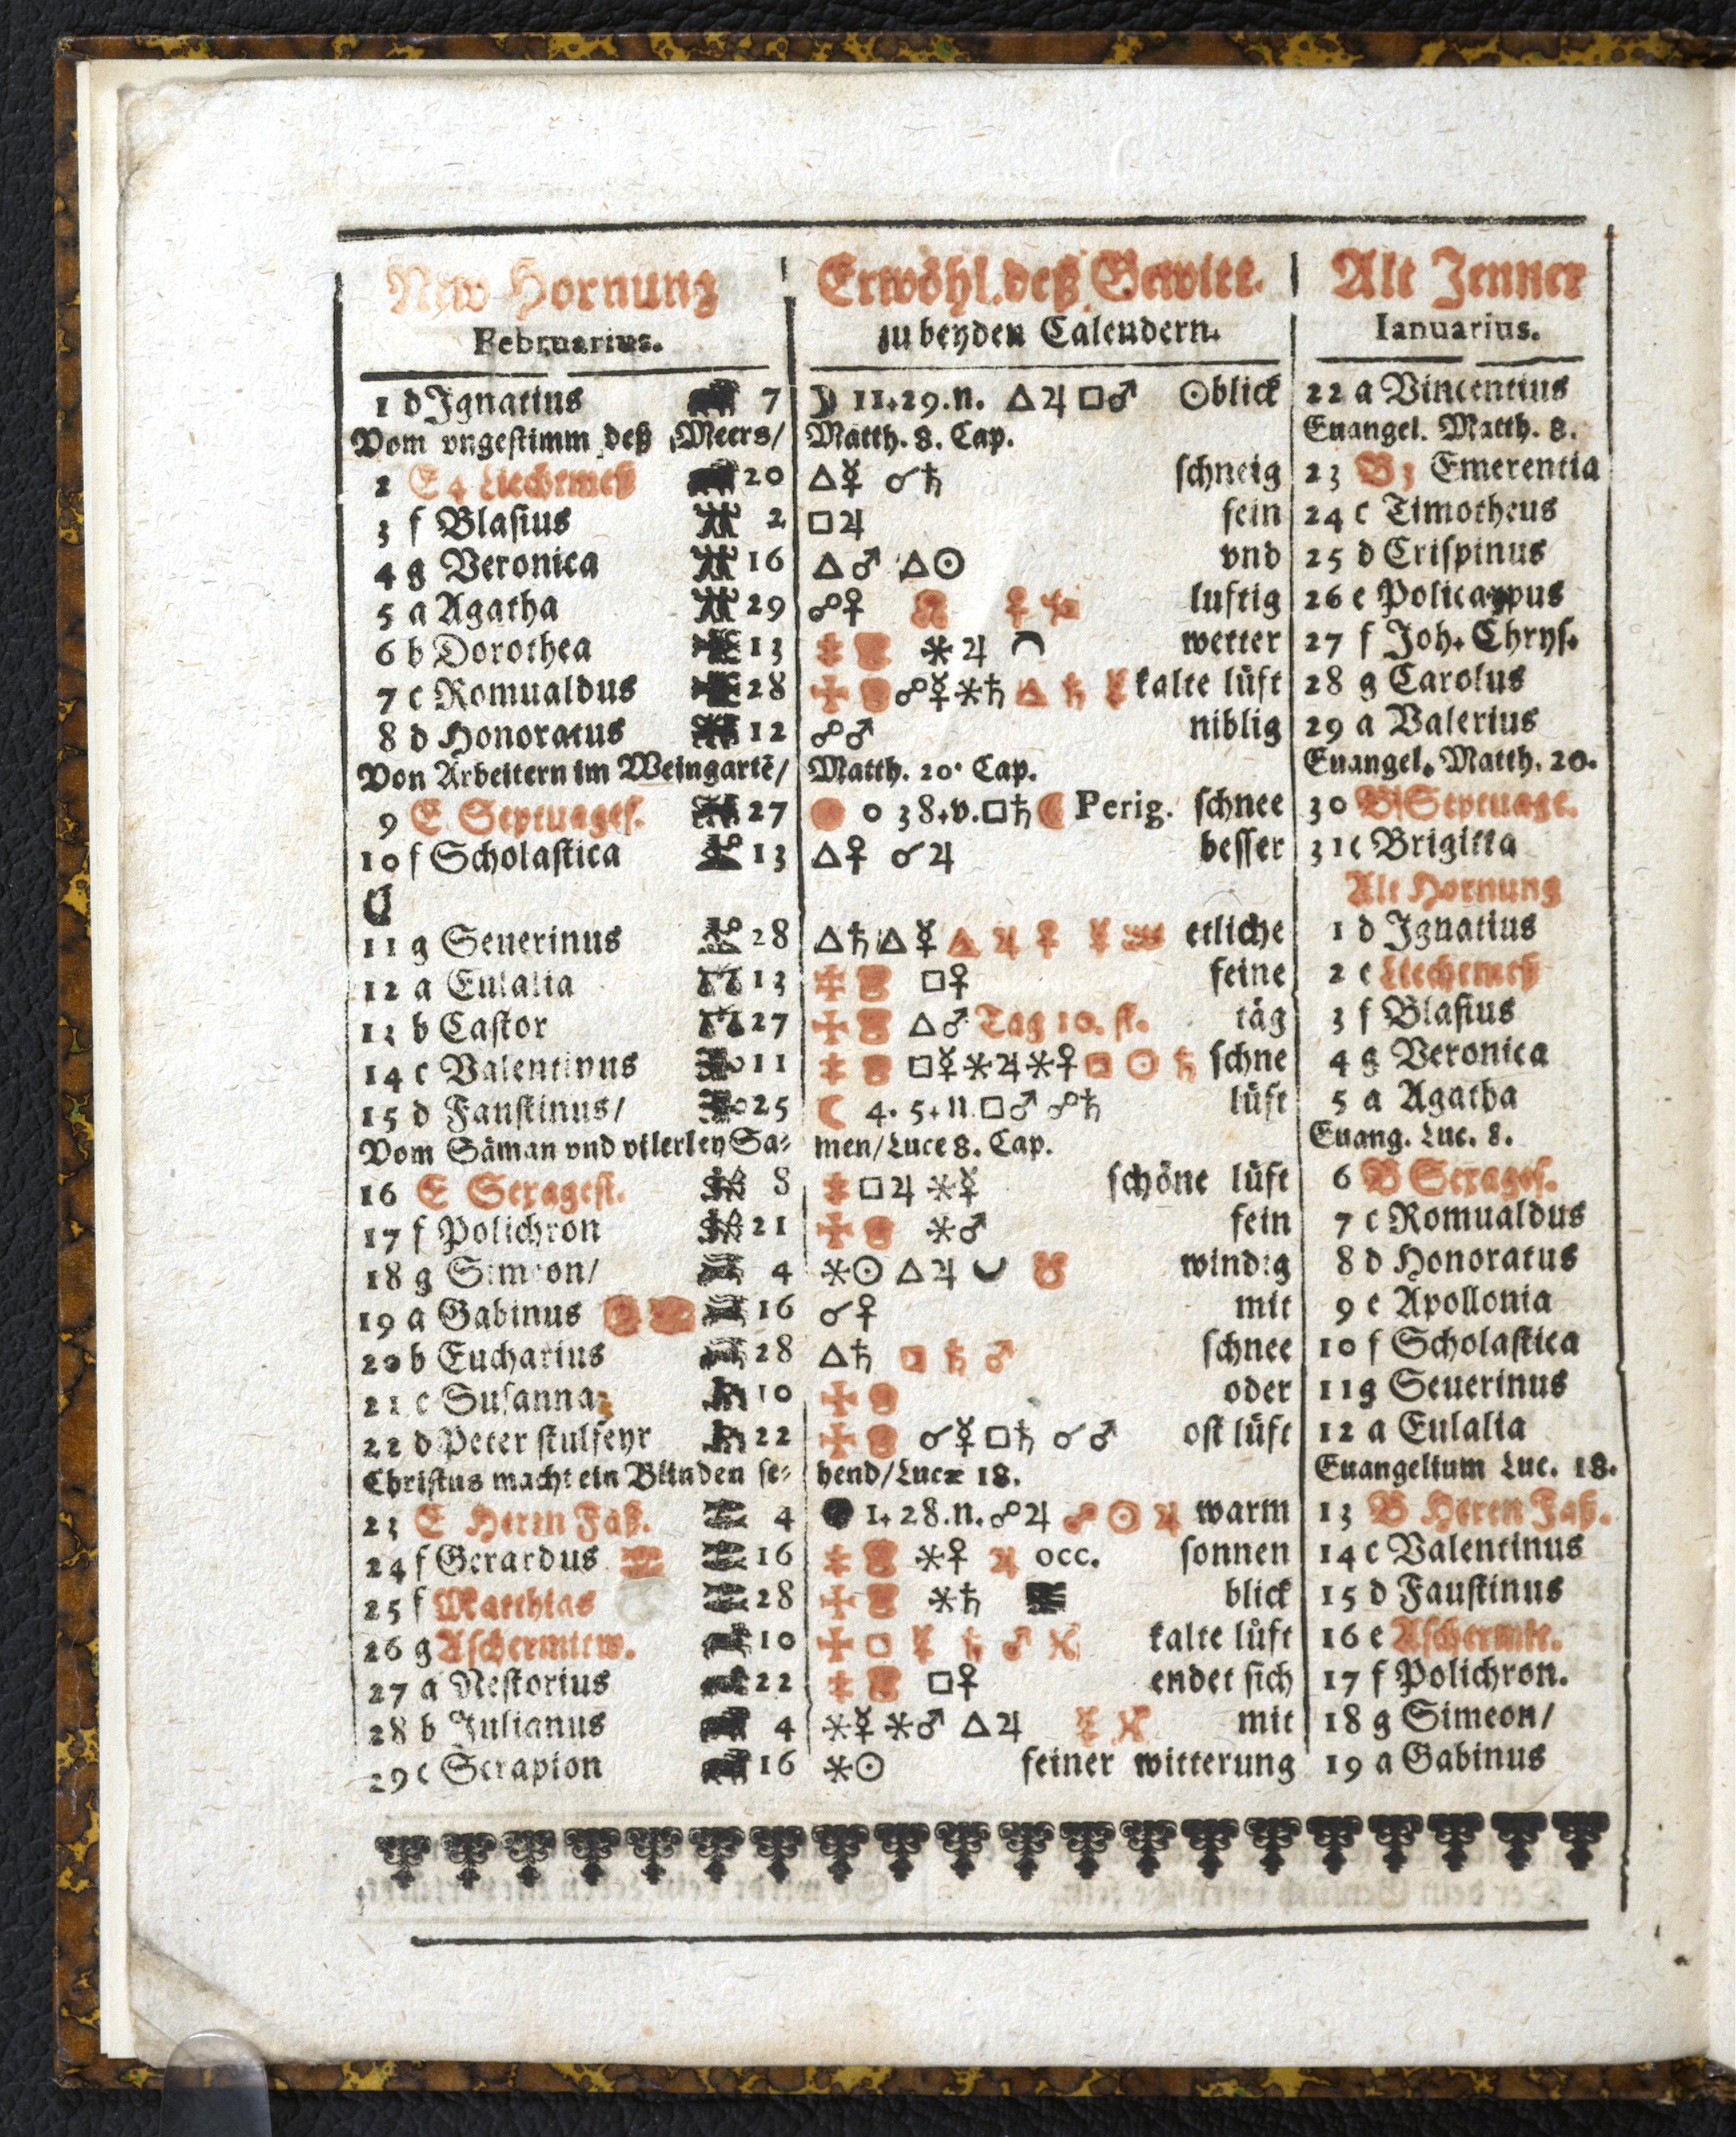 New Hornung | Erwöhl. deß Gewitt. | Alt Jenner
Februarius. | zu beyden Calendern. | Ianuarius.
1 d Ignatius 7 | ☽ 11.29.n. △♃ □♂ ☉blick | 22 a Vincentius
Vom vngestimm deß Meers/ | Matth. 8. Cap. | Euangel. Matth. 8.
2 E 4 Liechtmeß 20 | △☿ ☌♄ schneig | 23 B 3 Emerentia
3 f Blasius 2 | □♃ fein | 24 c Timotheus
4 g Veronica 16 | △♂ △☉ vnd | 25 d Crispinus
5 a Agatha 29 | ☍♀ ☊ ♀ ♑ luftig | 26 e Policarpus
6 b Dorothea 13 | ⚹♃ wetter | 27 f Joh. Chrys.
7 c Romualdus 28 | ☍☿⚹♄ △ ♄ ☿ kalte lüft | 28 g Carolus
8 d Honoratus 12 | ☍♂ niblig | 29 a Valerius
Von Arbeitern im Weingartē/ | Matth. 20. Cap. | Euangel. Matth. 20.
9 E Septuages. 27 | 0 38.v.□♄☾ Perig. schnee | 30 B Septuage.
10 f Scholastica 13 | △♀ ☌♃ besser | 31 c Brigitta
Alt Hornung
11 g Seuerinus 28 | △♄ △☿ △ ♃ ♀ ☿ ♒ etliche | 1 d Ignatius
12 a Eulalia 13 | □♀ feine | 2 e Liechtmeß
13 b Castor 27 | △♂ Tag 10. st. täg | 3 f Blasius
14 c Valentinus 11 | □☿⚹♃⚹♀ □ ☉ ♄ schne | 4 g Veronica
15 d Faustinus/ 25 | ☾ 4. 5.n.□♂ ☍♄ lüft | 5 a Agatha
Vom Säman vnd vilerley Sa= | men/Luce 8. Cap. | Euang. Luc. 8.
16 E Sexagesi. 8 | □♃ ⚹☿ schöne lüft | 6 B Sexages.
17 f Polichron 21 | ⚹♂ fein | 7 c Romualdus
18 g Simeon/ 4 | ⚹☉ △♃ ☋ windig | 8 d Honoratus
19 a Gabinus 16 | ☌♀ mit | 9 e Apollonia
20 b Eucharius 28 | △♄ □ ♄ ♂ schnee | 10 f Scholastica
21 c Susanna 10 | oder | 11 g Seuerinus
22 d Peter stulfeyr 22 | ☌☿□♄ ☌♂ ost lüft | 12 a Eulalia
Christus macht ein Blinden se= | hend/Lucæ 18. | Euangelium Luc. 18.
23 E Herrn Faß. 4 | ● 1.28.n.☍♃ ☍ ☉ ♃ warm | 13 B Herren Faß.
24 f Gerardus 16 | ⚹♀ ♃ occ. sonnen | 14 c Valentinus
25 f Matthias 28 | ⚹♄ blick | 15 d Faustinus
26 g Aschermitw. 10 | □ ☿ ♄ ♂ ♓ kalte lüft | 16 e Aschermit.
27 a Nestorius 22 | □♀ endet sich | 17 f Polichron.
28 b Julianus 4 | ⚹☿ ⚹♂ △♃ ☿ ♓ mit | 18 g Simeon/
29 c Serapion 16 | ⚹☉ feiner witterung | 19 a Gabinus